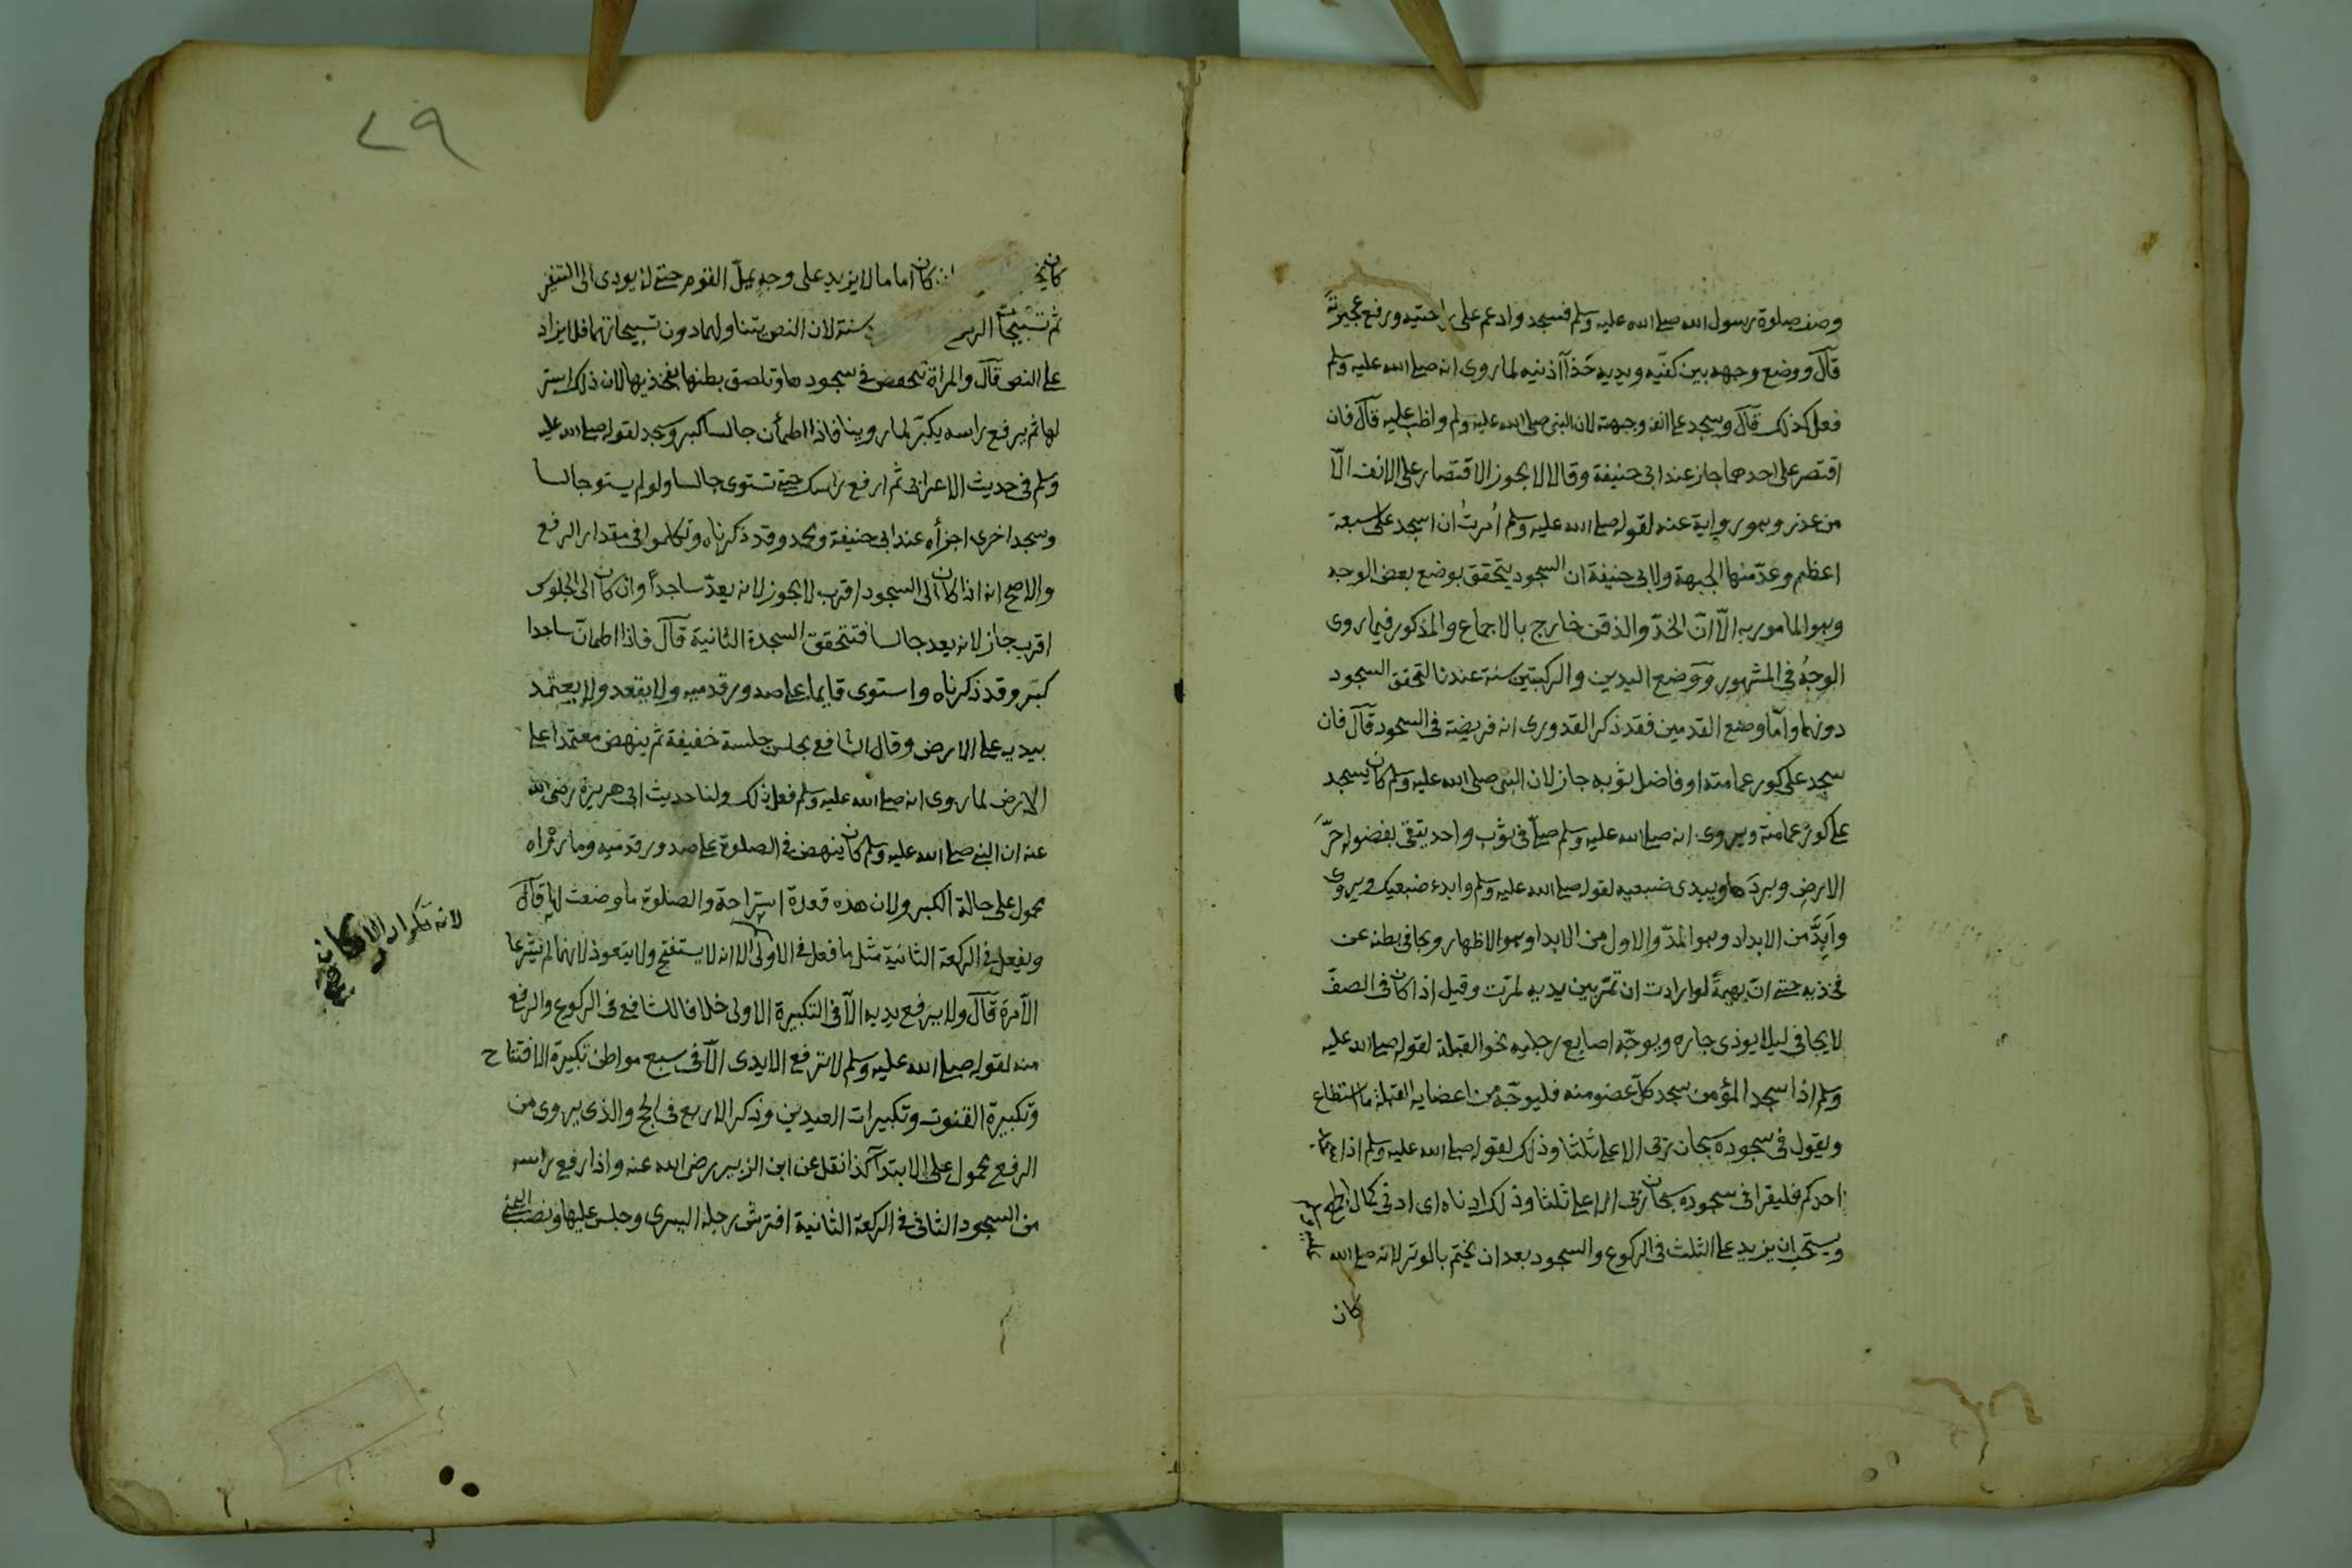 وصف صلوة رسول الله صلى الله عليه وسلم فسجد وادعم على راحتيه ورفع عجيزته
قال ووضع وجهه بين كفيه ويديه حذآ اذنيه لما روى انه صلى الله عليه وسلم
فعل كذلك قال وسجد على انفه وجبهته لان النبى صلى الله عليه وسلم واظب عليه قال فان
اقتصر على احدهما جاز عند ابى حنيفة وقالا لا يجوز الاقتصار على الانف الّا
من عذر وهو رواية عنه لقوله صلى الله عليه وسلم اُمرتُ ان اسجد على سبعة
اعظم وعدّ منها الجبهة ولابى حنيفة ان السجود يتحقق بوضع بعض الوجه
وهو المامور به الّا انّ الخدّ والذقن خارج بالاجماع والمذكور فيما روى
الوجهُ فى المشهور ووضع اليدين والركبتين سنة عندنا لتحقق السجود
دونهما وامّا وضع القدمين فقد ذكر القدورى انه فريضة فى السجود قال فان
سجد على كور عمامته او فاضل ثوبه جاز لان النبى صلى الله عليه وسلم كان يسجد
على كور عمامته ويروى انه صلى الله عليه وسلم صلّى فى ثوب واحد يتقى بفضوله حرّ
الارض وبردها ويبدى ضبعيه لقوله صلى الله عليه وسلم وابدء ضبعيك ويروى
وابِدَّ من الابداد وهو المدّ والاول من الابدا وهو الاظهار ويجافى بطنه عن
فخذيه حتى انّ بهمةً لو ارادت ان تمرّ بين يديه لمرّت وقيل اذا كان فى الصفّ
لا يجافى ليلا يوذى جاره ويوجّه اصابع رجليه نحو القبلة لقوله صلى الله عليه
وسلم اذا سجد المؤمن سجد كلّ عضو منه فليوجّه من اعضايه القبلة ما استطاع
ويقول فى سجوده سبحان ربى الاعلى ثلثا وذلك لقوله صلى الله عليه وسلم اذا سجد
احدكم فليقرا فى سجوده سبحان ربى الاعلى ثلثا وذلك ادناه اى ادنى كمال الجمع
ويستحب ان يزيد على الثلث فى الركوع والسجود بعد ان يختم بالوتر لانه صلى الله
عليه وسلم
كان
٢٩
كان يختم كان اماما لا يزيد على وجه يملّ القوم حتى لا يودى الى التنفر
ثم تسبيحات سنة لان النص يتناولهما دون تسبيحاتهما فلا يزاد
على النص قال والمراة تنخفض فى سجودها وتلصق بطنها بفخذيها لان ذلك استر
لها ثم يرفع راسه يكبّر لما روينا فاذا اطمأن جالسا كبر وسجد لقوله صلى الله عليه
وسلم فى حديث الاعرابى ثم ارفع راسك حتى تستوى جالسا ولو لم يستو جالسا
وسجد اخرى اجزأه عند ابى حنيفة ومحمد وقد ذكرناه وتكلموا فى مقدار الرفع
والاصح انه اذا كان الى السجود اقرب لا يجوز لانه يعدّ ساجداً وان كان الى الجلوس
اقرب جاز لانه يعد جالسا فتتحقق السجدة الثانية قال فاذا اطمانّ ساجدا
كبّر وقد ذكرناه واستوى قايما على صدور قدميه ولا يقعد ولا يعتمد
بيديه على الارض وقال الشافعى يجلس جلسة خفيفة ثم ينهض معتمدا على
الارض لما روى انه صلى الله عليه وسلم فعل ذلك ولنا حديث ابى هريرة رضى الله
عنه ان النبى صلى الله عليه وسلم كان ينهض فى الصلوة على صدور قدميه وما رواه
محمول على حالة الكبر ولان هذه قعدة استراحة والصلوة ما وضعت لها قال
ويفعل فى الركعة الثانية مثل ما فعل فى الاولى الا انه لا يستفتح ولا يتعوذ لانهما لم يشرعا
لانه تكرار الاركان
الّا مرة قال ولا يرفع يديه الّا فى التكبيرة الاولى خلافا للشافعى فى الركوع والرفع
منه لقوله صلى الله عليه وسلم لا ترفع الايدى الّا فى سبع مواطن تكبيرة الافتتاح
وتكبيرة القنوت وتكبيرات العيدين وذكر الاربع فى الحج والذى يروى من
الرفع محمول على الابتدآ كذا نقل عن ابن الزبير رضى الله عنه واذا رفع راسه
من السجود الثانى فى الركعة الثانية افترش رجله اليسرى وجلس عليها ونصب اليمنى